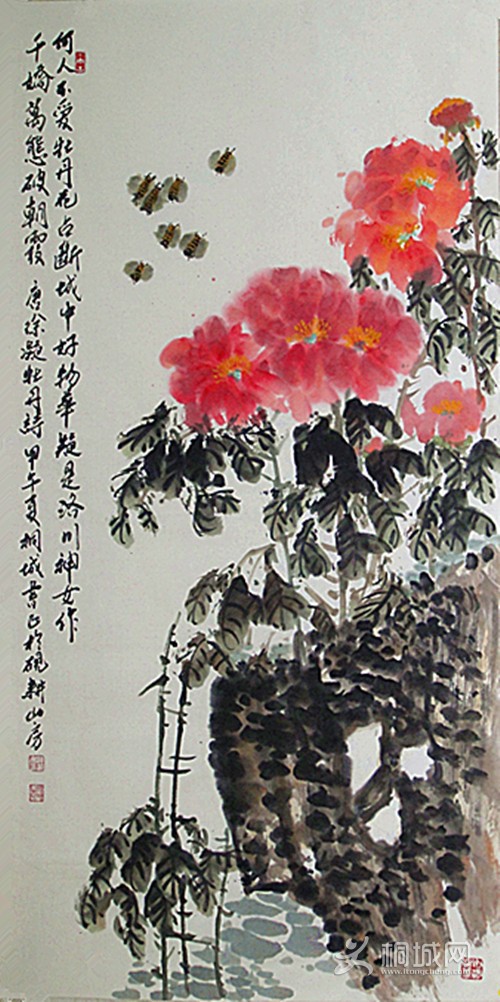 何人不爱牡丹花占断城中好物華疑是洛川神女作
千嬌萬態破朝霞 唐徐凝牡丹詩 甲午夏桐城 於硯耕山房
桐城网
www.itongcheng.com